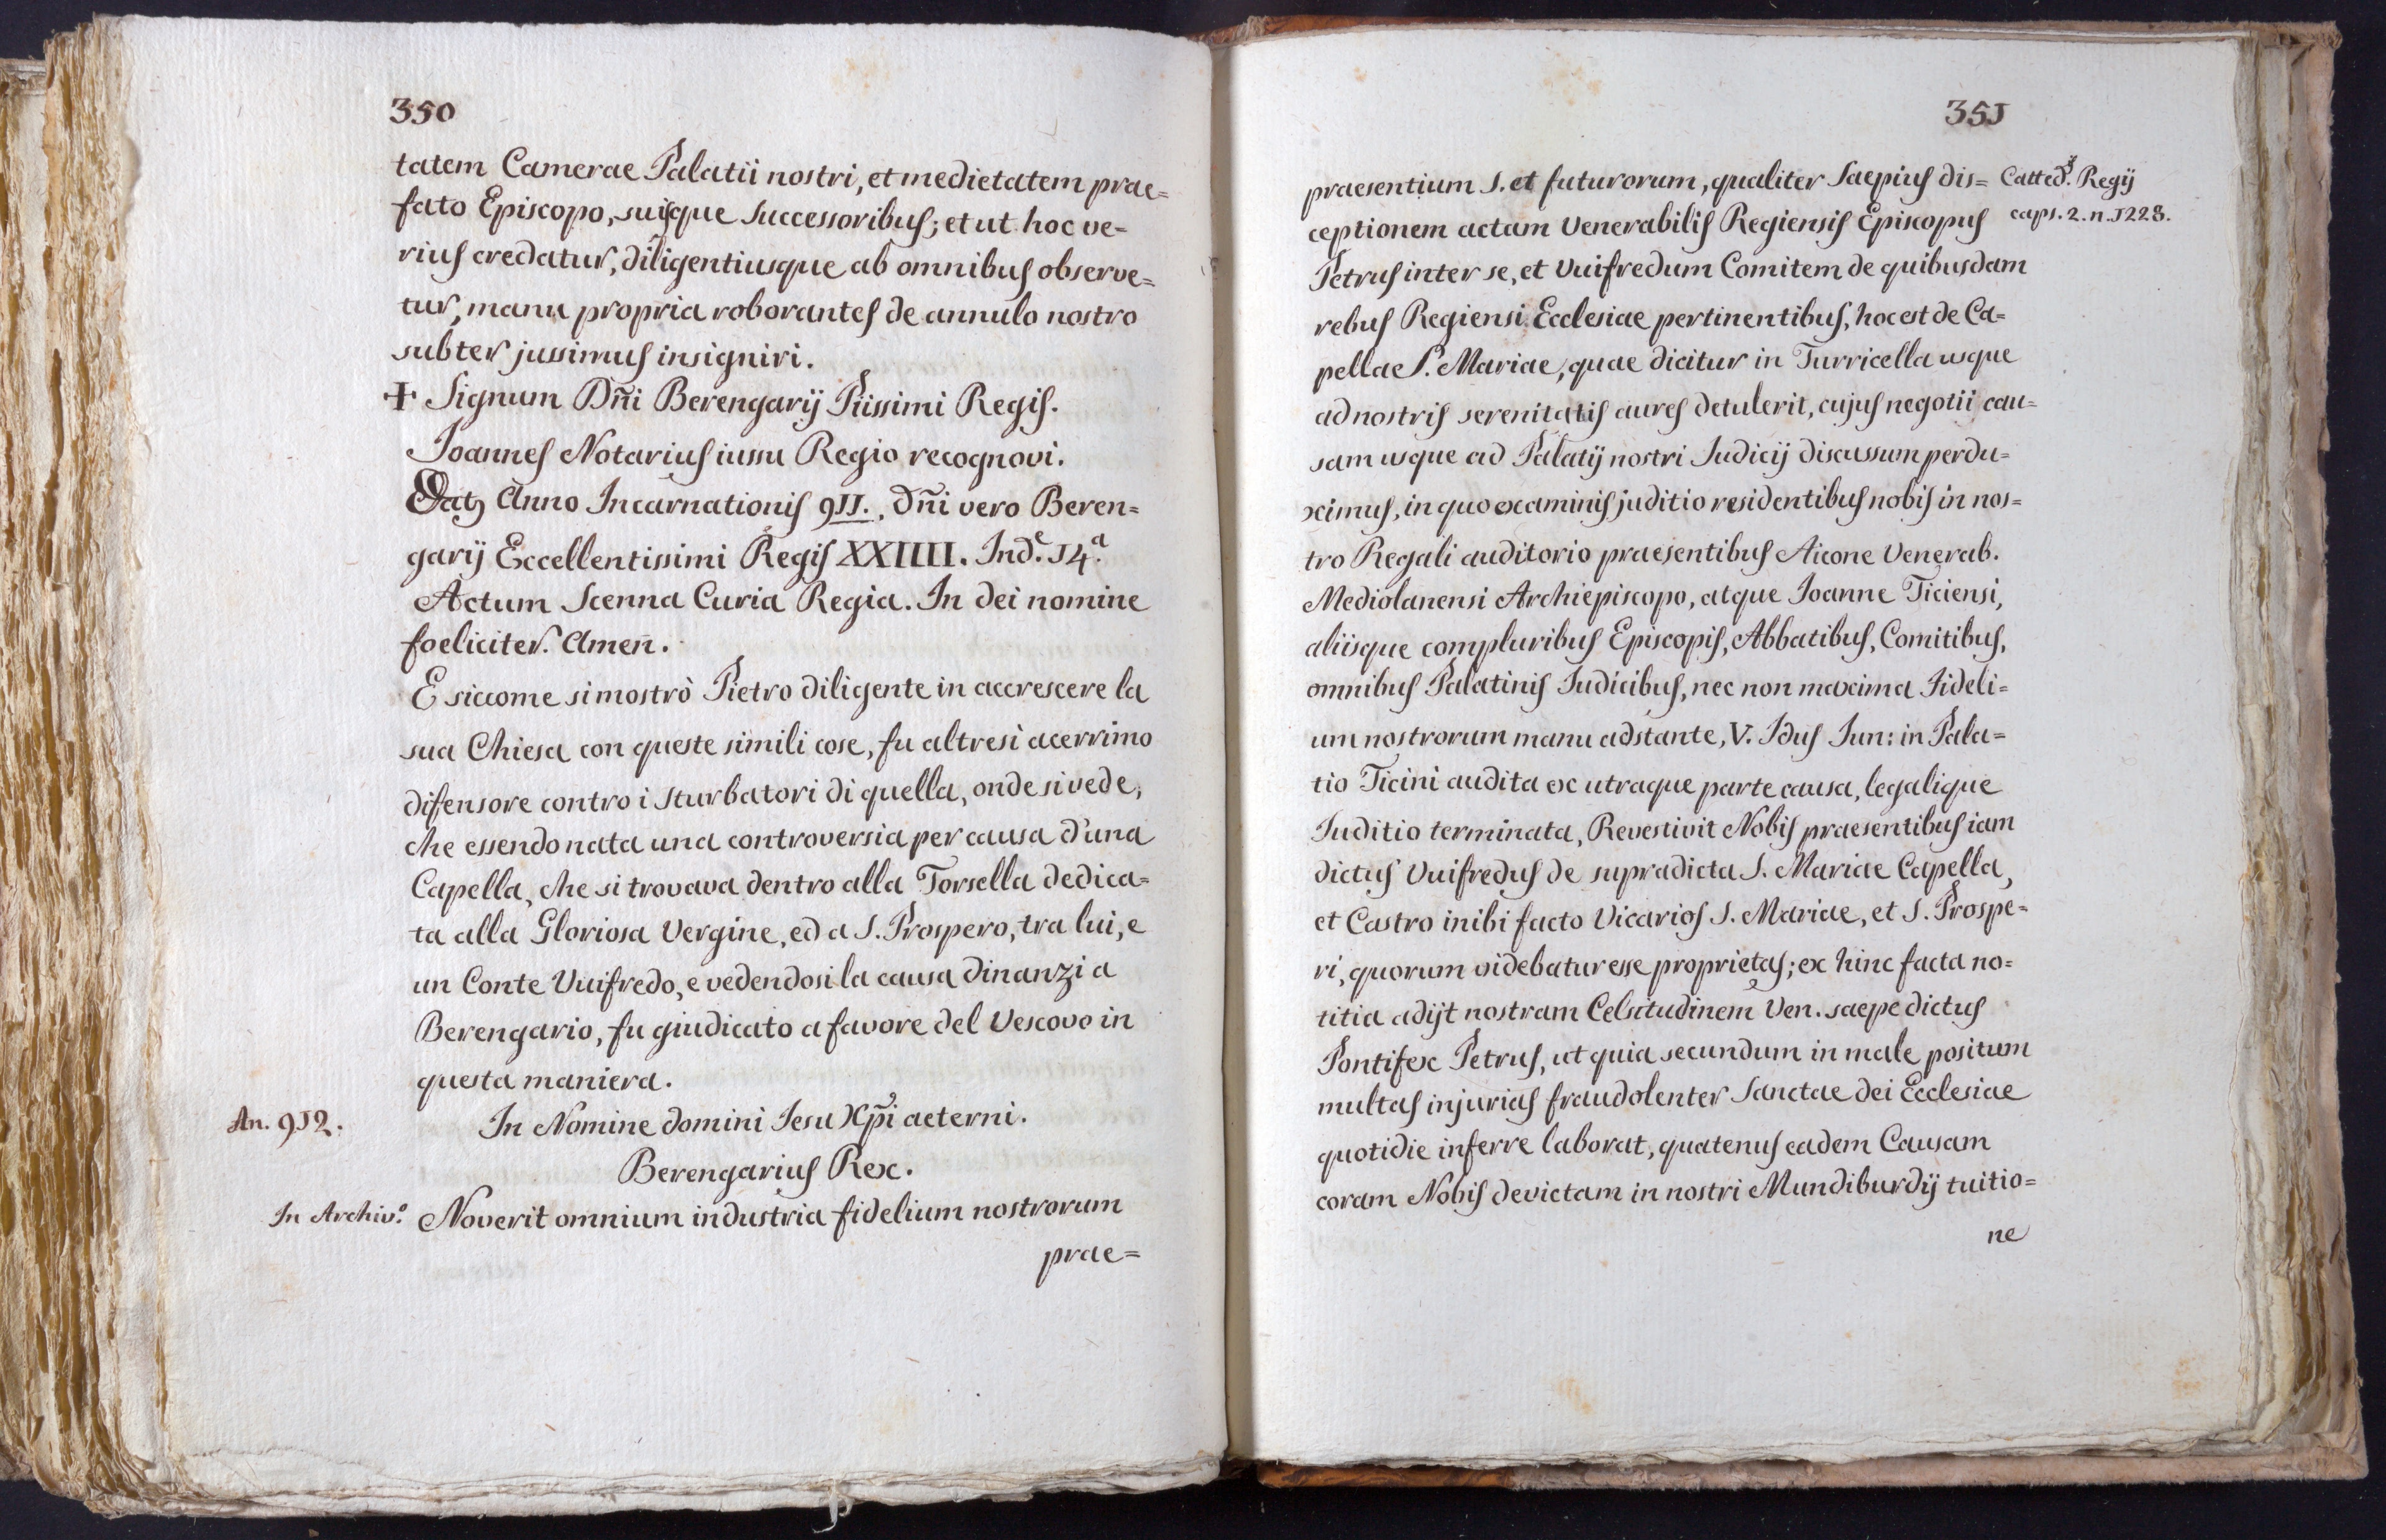 350
tatem Camerae Palatii nostri, et medietatem prae=
fato Episcopo, suisque successoribus; et ut hoc ve-
rius credatur, diligentiusque ab omnibus observe=
tur, manu propria roborantes de annulo nostro
subter jussimus insigniri.
+ Signum Dñi Berengarij Piissimi Regis.
Joannes Notarius iussu Regio recognovi.
Anno Incarnationis 911., Dñi vero Beren=
garij Eccellentissimi Regis XXIIII. Ind.e 14.a
Actum Scenna Curia Regia. In dei nomine
foeliciter. Amen.
E siccome si mostrò Pietro diligente in accrescere la
sua Chiesa con queste simili cose, fu altresì acerrimo
difensore contro i sturbatori di quella, onde si vede,
che essendo nata una controversia per causa d'una
Capella, che si trovava dentro alla Torsella dedica=
ta alla Gloriosa Vergine, ed a S. Prospero, tra lui, e
un Conte Vuifredo, e vedendosi la causa dinanzi a
Berengario, fu giudicato a favore del Vescovo in
questa maniera.
An. 912.
In Nomine domini Iesu Xp̃i aeterni.
Berengarius Rex.
In Archiv.o Noverit omnium industria fidelium nostrorum
prae=
351
praesentium S. et futurorum, qualiter saepius dis= Catted. Regij
ceptionem actam Venerabilis Regiensis Episcopus caps. 2. n. 1223.
Petrus inter se, et Vuifredum Comitem de quibusdam
rebus Regiensi Ecclesiae pertinentibus, hoc est de Ca=
pellae S. Mariae, quae dicitur in Turricella usque
ad nostris serenitatis aures detulerit, cujus negotii cau=
sam usque ad Palatij nostri Iudicij discussum perdu=
ximus, in quo examinis juditio residentibus nobis in nos=
tro Regali auditorio praesentibus Aicone Venerab.
Mediolanensi Archiepiscopo, atque Joanne Ticiensi,
aliisque compluribus Episcopis, Abbatibus, Comitibus,
omnibus Palatinis Iudicibus, nec non maxima Fideli=
um nostrorum manu adstante, V. Idus Iun: in Pala=
tio Ticini audita ex utraque parte causa, legalique
Iuditio terminata, Revestivit Nobis praesentibus iam
dictus Vuifredus de supradicta S. Mariae Capella,
et Castro inibi facto Vicarios S. Mariae, et S. Prospe=
ri, quorum videbatur esse proprietas; ex hinc facta no=
titia adijt nostram Celsitudinem Ven. saepe dictus
Pontifex Petrus, ut quia secundum in male positum
multas injurias fraudolenter Sanctae dei Ecclesiae
quotidie inferre laborat, quatenus eadem Causam
coram Nobis devictam in nostri Mundiburdij tuitio=
ne